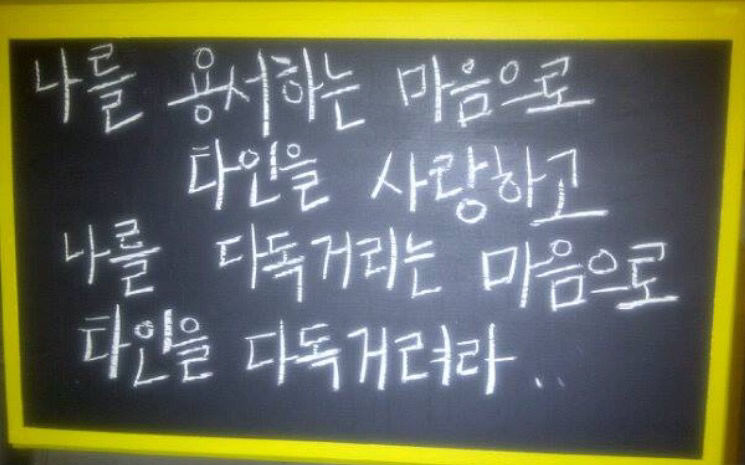 나를 용서하는 마음으로
타인을 사랑하고
나를 다독거리는 마음으로
타인을 다독거려라..